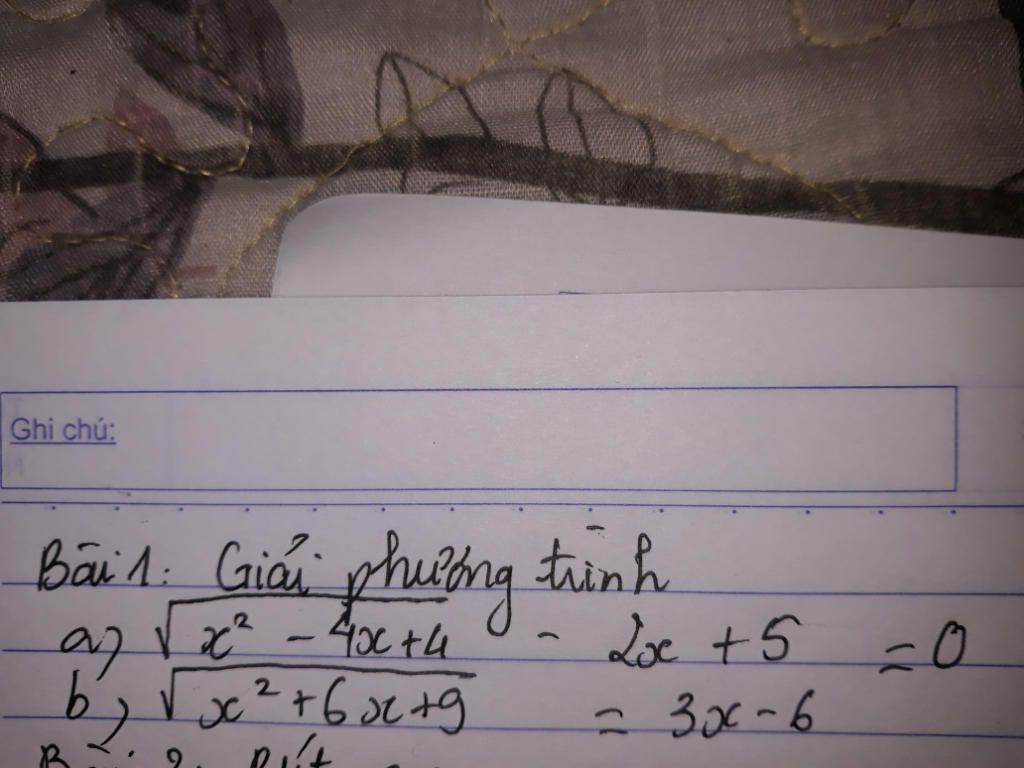 Ghi chú:
Bài 1: Giải phương trình
a) √x² - 4x+4 - 2x + 5 = 0
b) √x² + 6x+9 = 3x - 6